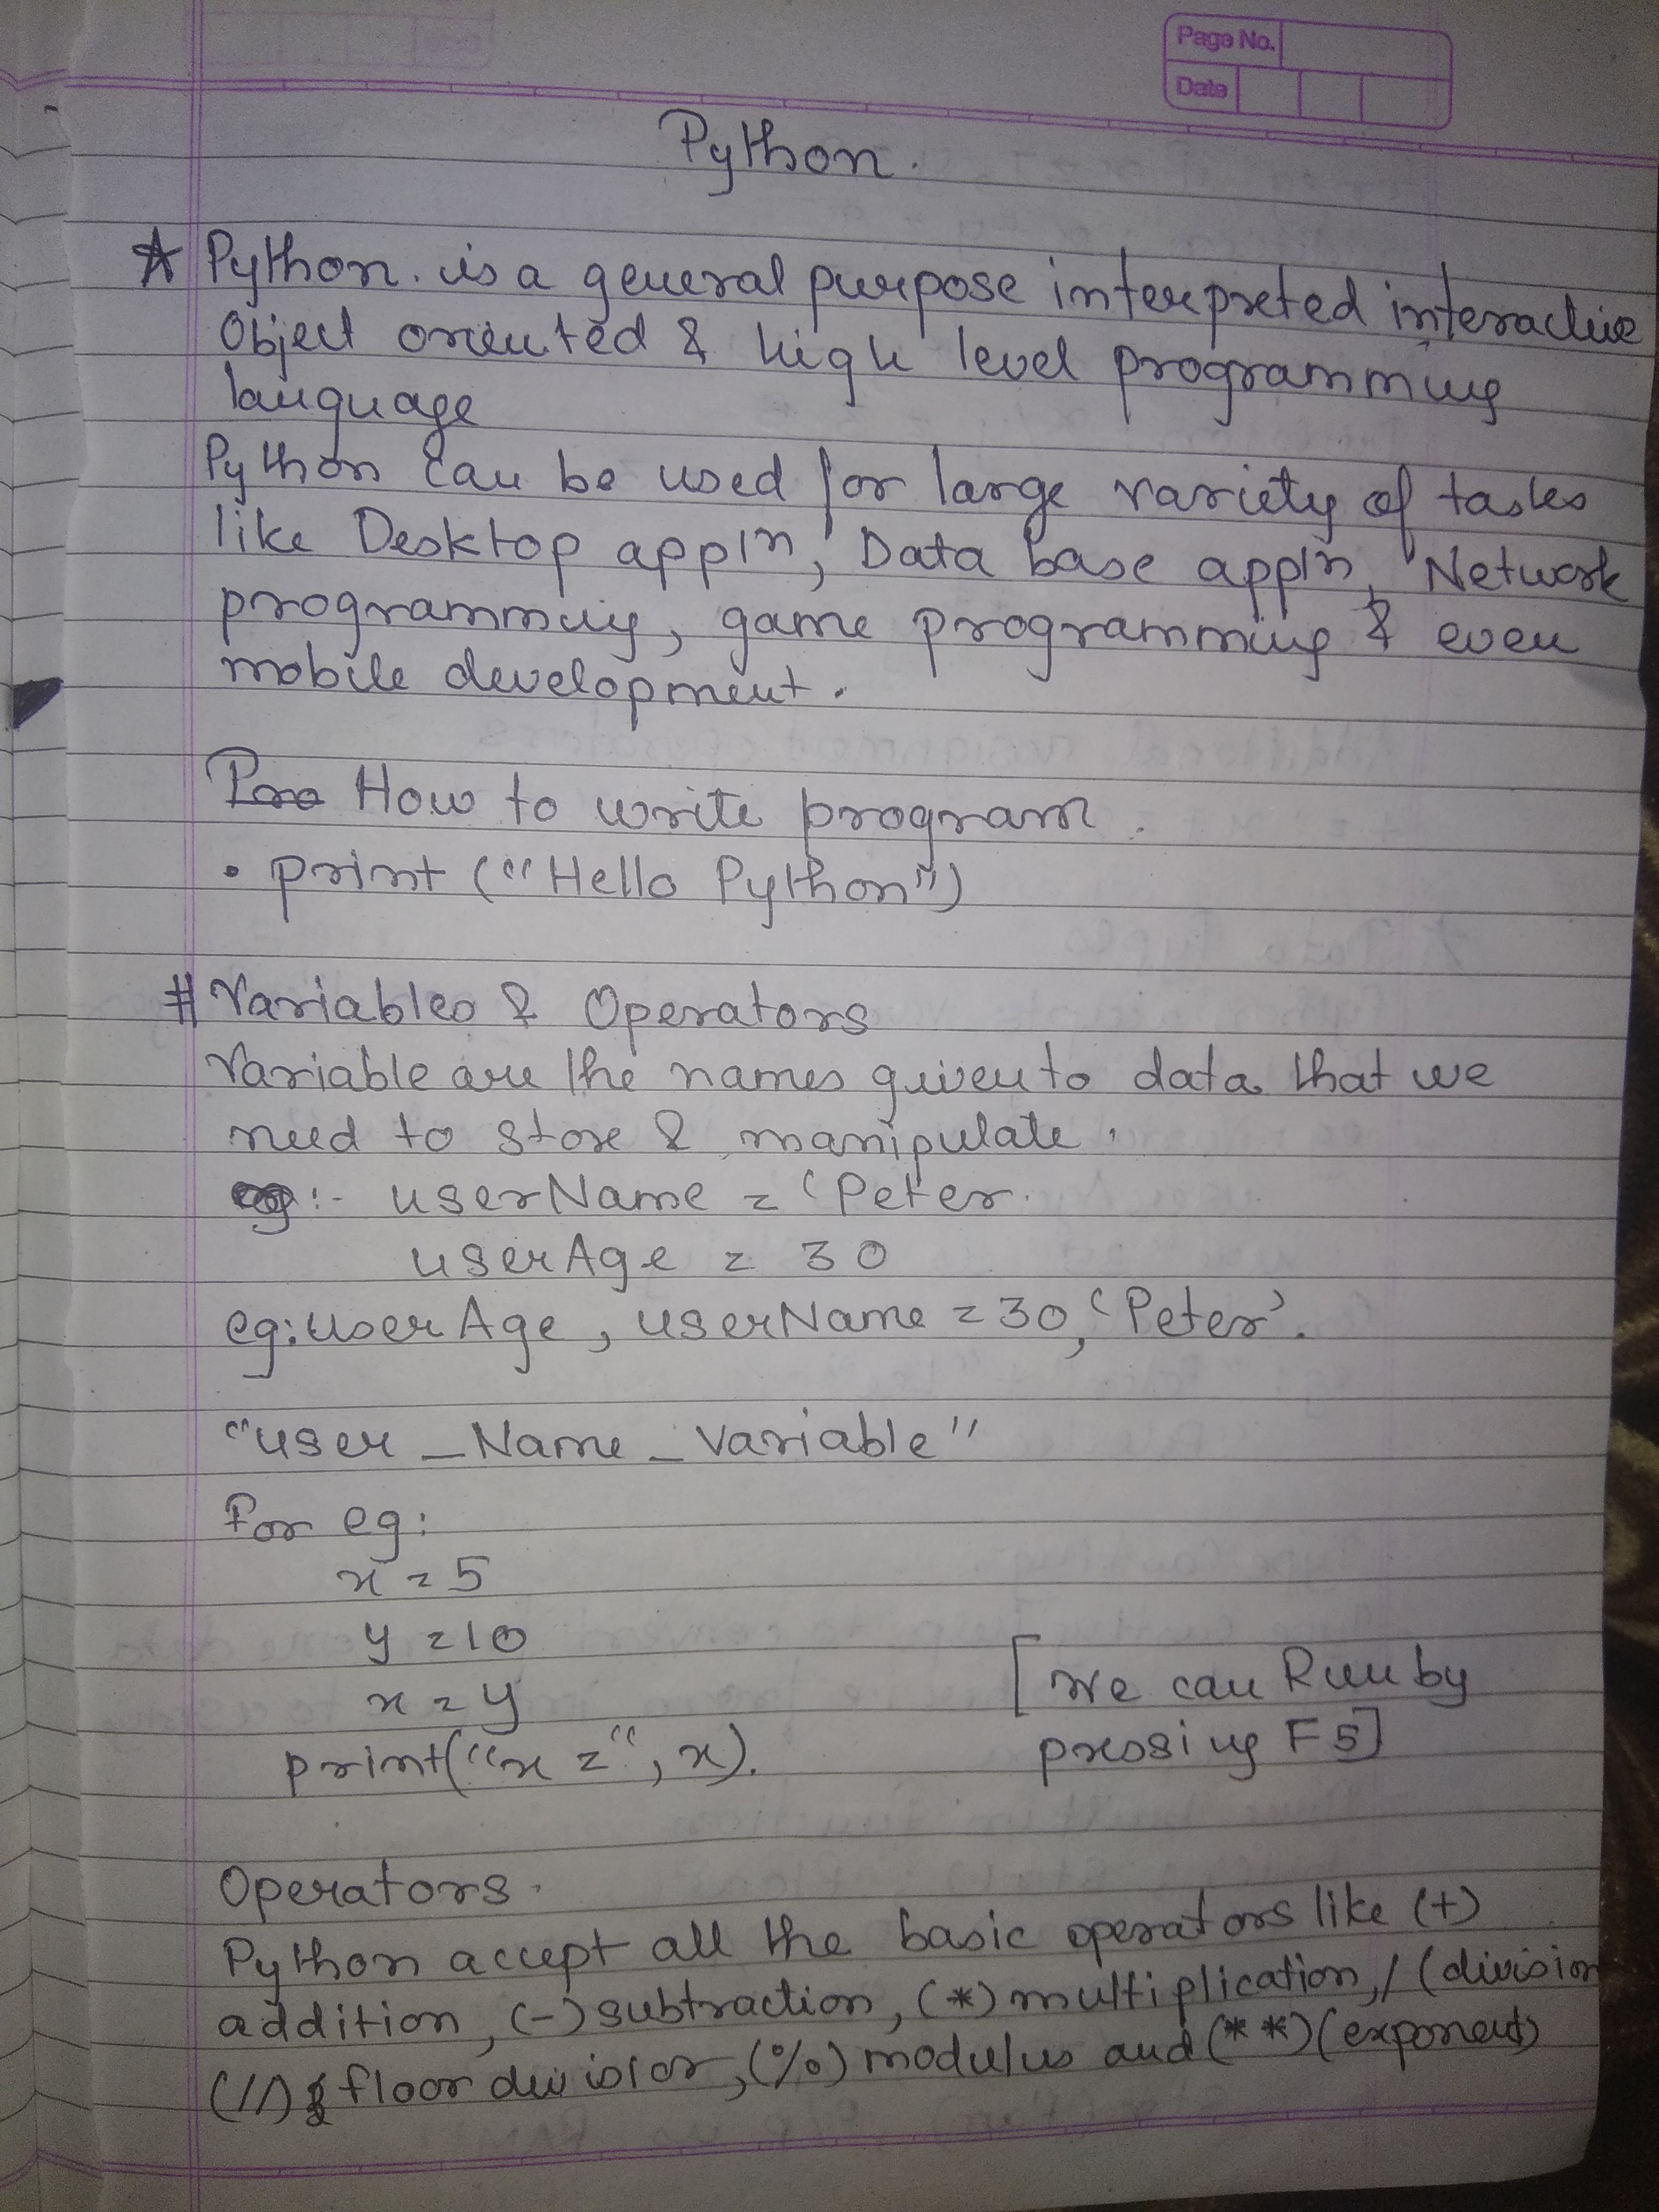 Page No.
Date
Python.
☆ Python. is a general purpose interpreted interactive
Object oriented & high level programming
language
Python can be used for large variety of tasks
like Desktop appln, Data base appln, Network
programming, game programming & even
mobile development.
How to write program.
• print ("Hello Python")
# Variables & Operators
Variable are the names given to data that we
need to store & manipulate.
eg:- userName = 'Peter.
userAge = 30
eg: userAge, userName = 30, 'Peter'.
"user_Name_Variable"
For eg:
x = 5
y = 10
x = y
print("x =", x).
[We can Run by
pressing F5]
Operators.
Python accept all the basic operators like (+)
addition, (-) subtraction, (*) multiplication, / (division
(//) floor divisior, (%) modulus and (**) (exponent)